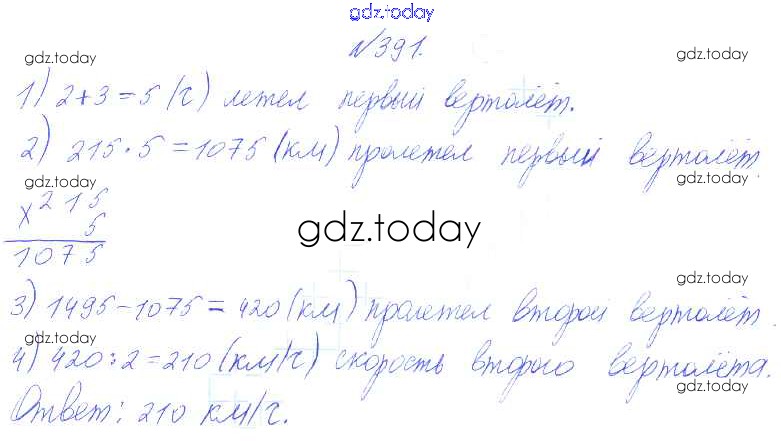 gdz.today
№391.
gdz.today gdz.today
1) 2+3=5 (ч) летел первый вертолёт.
2) 215·5=1075 (км) пролетел первый вертолёт.
gdz.today gdz.today
×215
5
1075
gdz.today
gdz.today
3) 1495-1075=420 (км) пролетел второй вертолёт.
gdz.today
4) 420:2=210 (км/ч) скорость второго вертолёта.
gdz.today
Ответ: 210 км/ч.